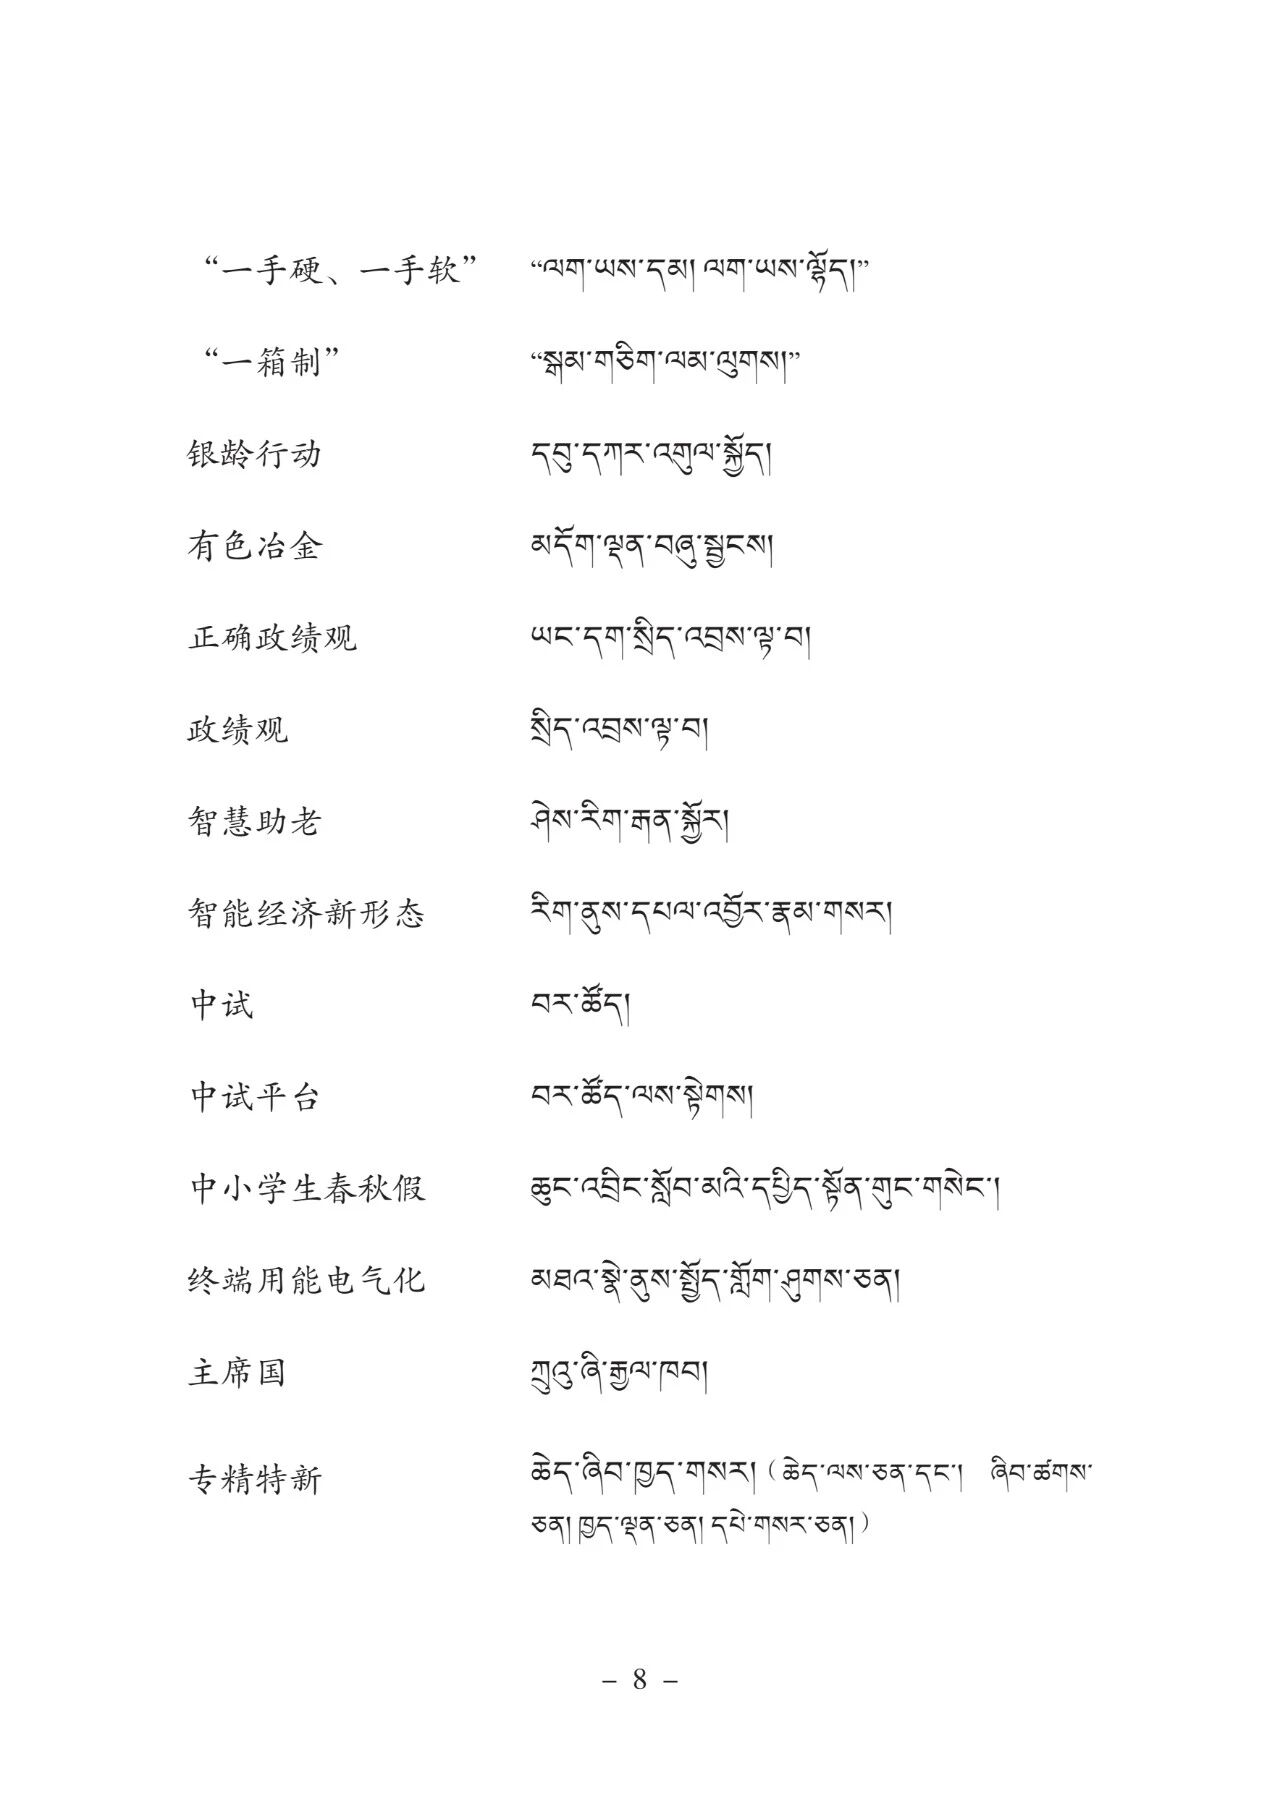 “一手硬、一手软” “ལག་ཡས་དམ། ལག་ཡས་ལྷོད།”
“一箱制” “སྒམ་གཅིག་ལམ་ལུགས།”
银龄行动 དབུ་དཀར་འགུལ་སྐྱོད།
有色冶金 མདོག་ལྡན་བཞུ་སྦྱངས།
正确政绩观 ཡང་དག་སྲིད་འབྲས་ལྟ་བ།
政绩观 སྲིད་འབྲས་ལྟ་བ།
智慧助老 ཤེས་རིག་རྒན་སྐྱོར།
智能经济新形态 རིག་ནུས་དཔལ་འབྱོར་རྣམ་གསར།
中试 བར་ཚོད།
中试平台 བར་ཚོད་ལས་སྟེགས།
中小学生春秋假 ཆུང་འབྲིང་སློབ་མའི་དཔྱིད་སྟོན་གུང་གསེང་།
终端用能电气化 མཐའ་སྣེ་ནུས་སྤྱོད་གློག་ཤུགས་ཅན།
主席国 ཀྲུའུ་ཞི་རྒྱལ་ཁབ།
专精特新 ཆེད་ཞིབ་ཁྱད་གསར། (ཆེད་ལས་ཅན་དང་། ཞིབ་ཚགས་
ཅན། ཁྱད་ལྡན་ཅན། དཔེ་གསར་ཅན།)
– 8 –